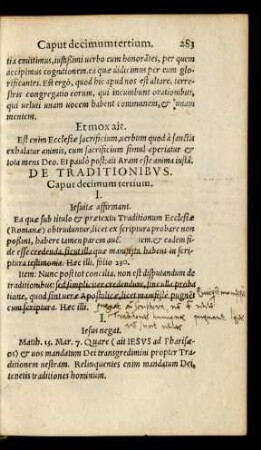 Caput decimumtertium. 283
tiã emittimus, iustissimi uerbo cum honorãtes, per quem
accipimus cognitionem. ea quæ didicimus per eum glo-
rificantes. Est ergò, quod hic apud nos est altare, terre-
stris congregatio eorum, qui incumbunt orationibus,
qui ueluti unam uocem habent communem, & unam
mentem.
Et mox ait.
Est enim Ecclesiæ sacrificium, uerbum quod à sanctis
exhalatur animis, cum sacrificium simul aperitur &
tota mens Deo. Et paulò post ait Aram esse animã iustã.
DE TRADITIONIBVS.
Caput decimum tertium.
I.
Iesuitæ affirmant.
Ea quæ sub titulo & prætextu Traditionum Ecclesiæ
(Romanæ) obtruduntur, licet ex scriptura probare non
possint, habere tamen parem & eadem fi-
de esse credenda, sicut illa quæ manifestã habent in scri-
ptura testimonia. Hæc illi. folio 230.
Item: Nunc post tot concilia, non est disputandum de
traditionibus: sed simpliciter credendum, sine ulla proba
tione, quòd sint ueræ Apostolicæ, licet manifestè pugnẽt
cum scriptura. Hæc illi.
I.
Iesus negat.
Matth. 15. Mar. 7. Quare (ait IESVS ad Pharisæ-
os) & uos mandatum Dei transgredimini propter Tra-
ditionem uestram. Relinquentes enim mandatum Dei,
tenetis traditiones hominum.